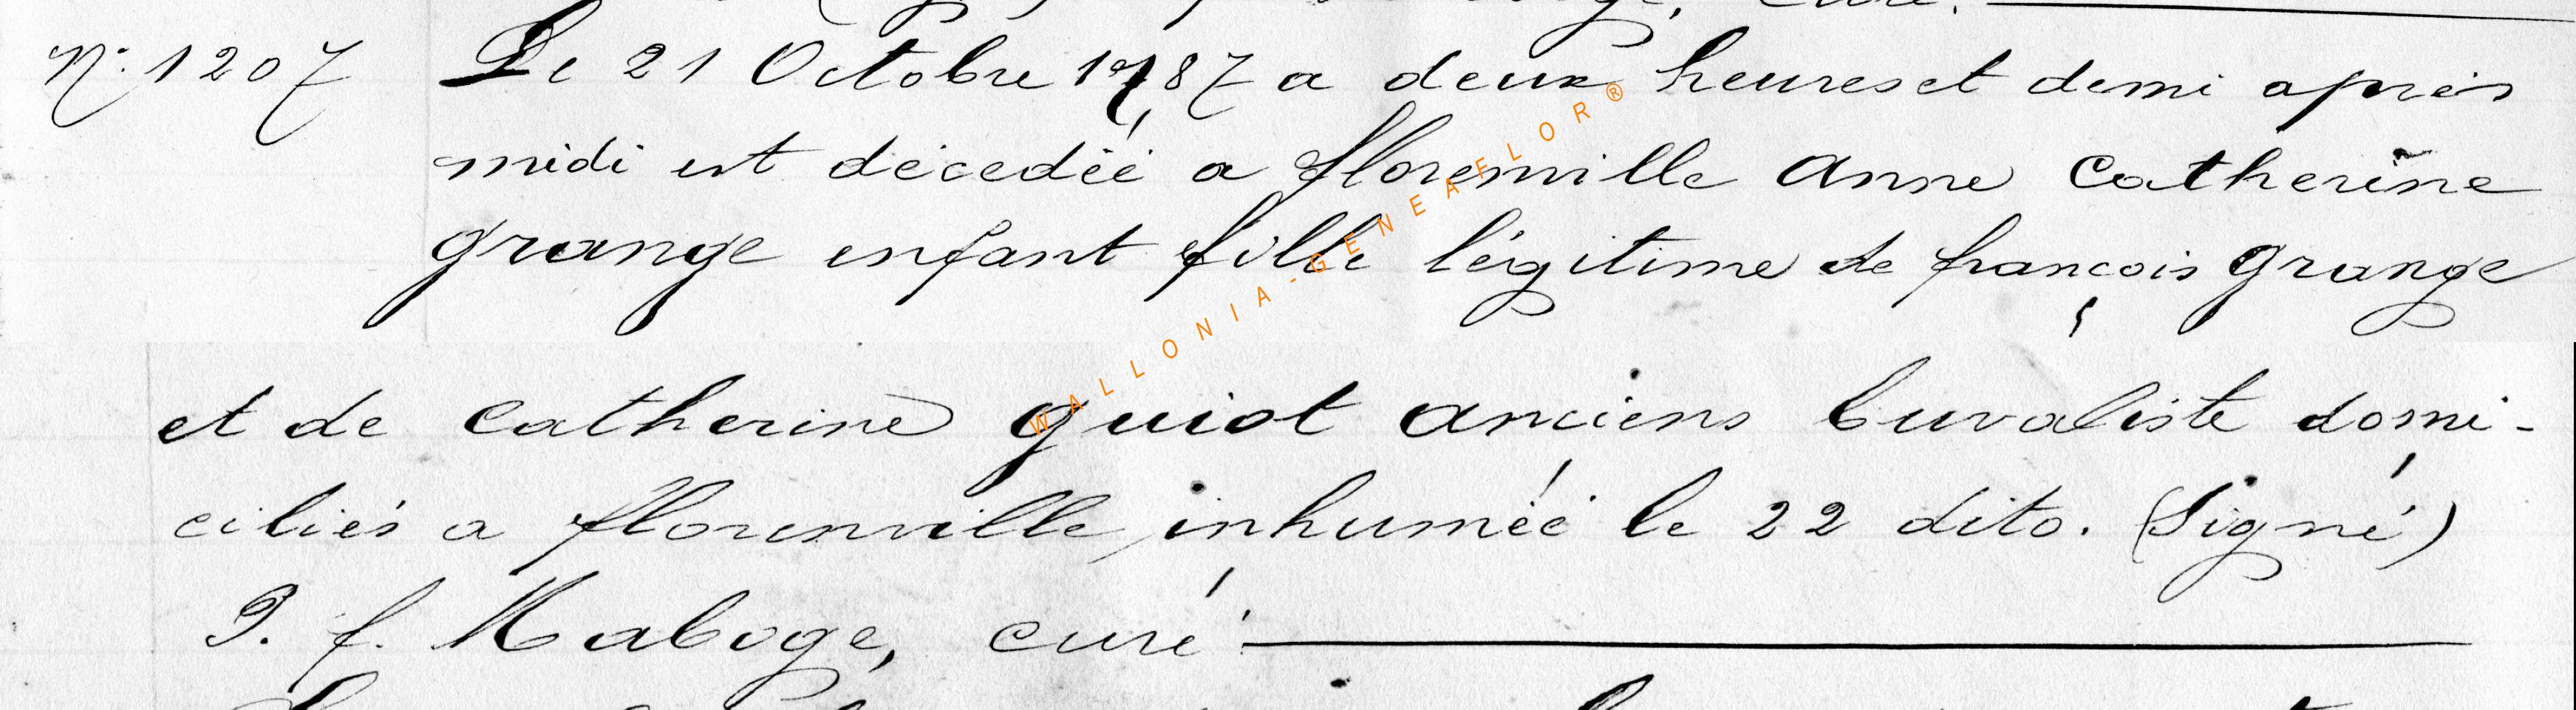 N° 1207 Le 21 Octobre 1787 a deux heures et demi après
midi est décedéé a florenville Anne Catherine
grange enfant fille légitime de francois grange
et de catherine guiot anciens buraliste domi-
ciliés a florenville, inhuméé le 22 dito. (Signé)
P. f. Maboge, curé
WALLONIA-GENEAFLOR®